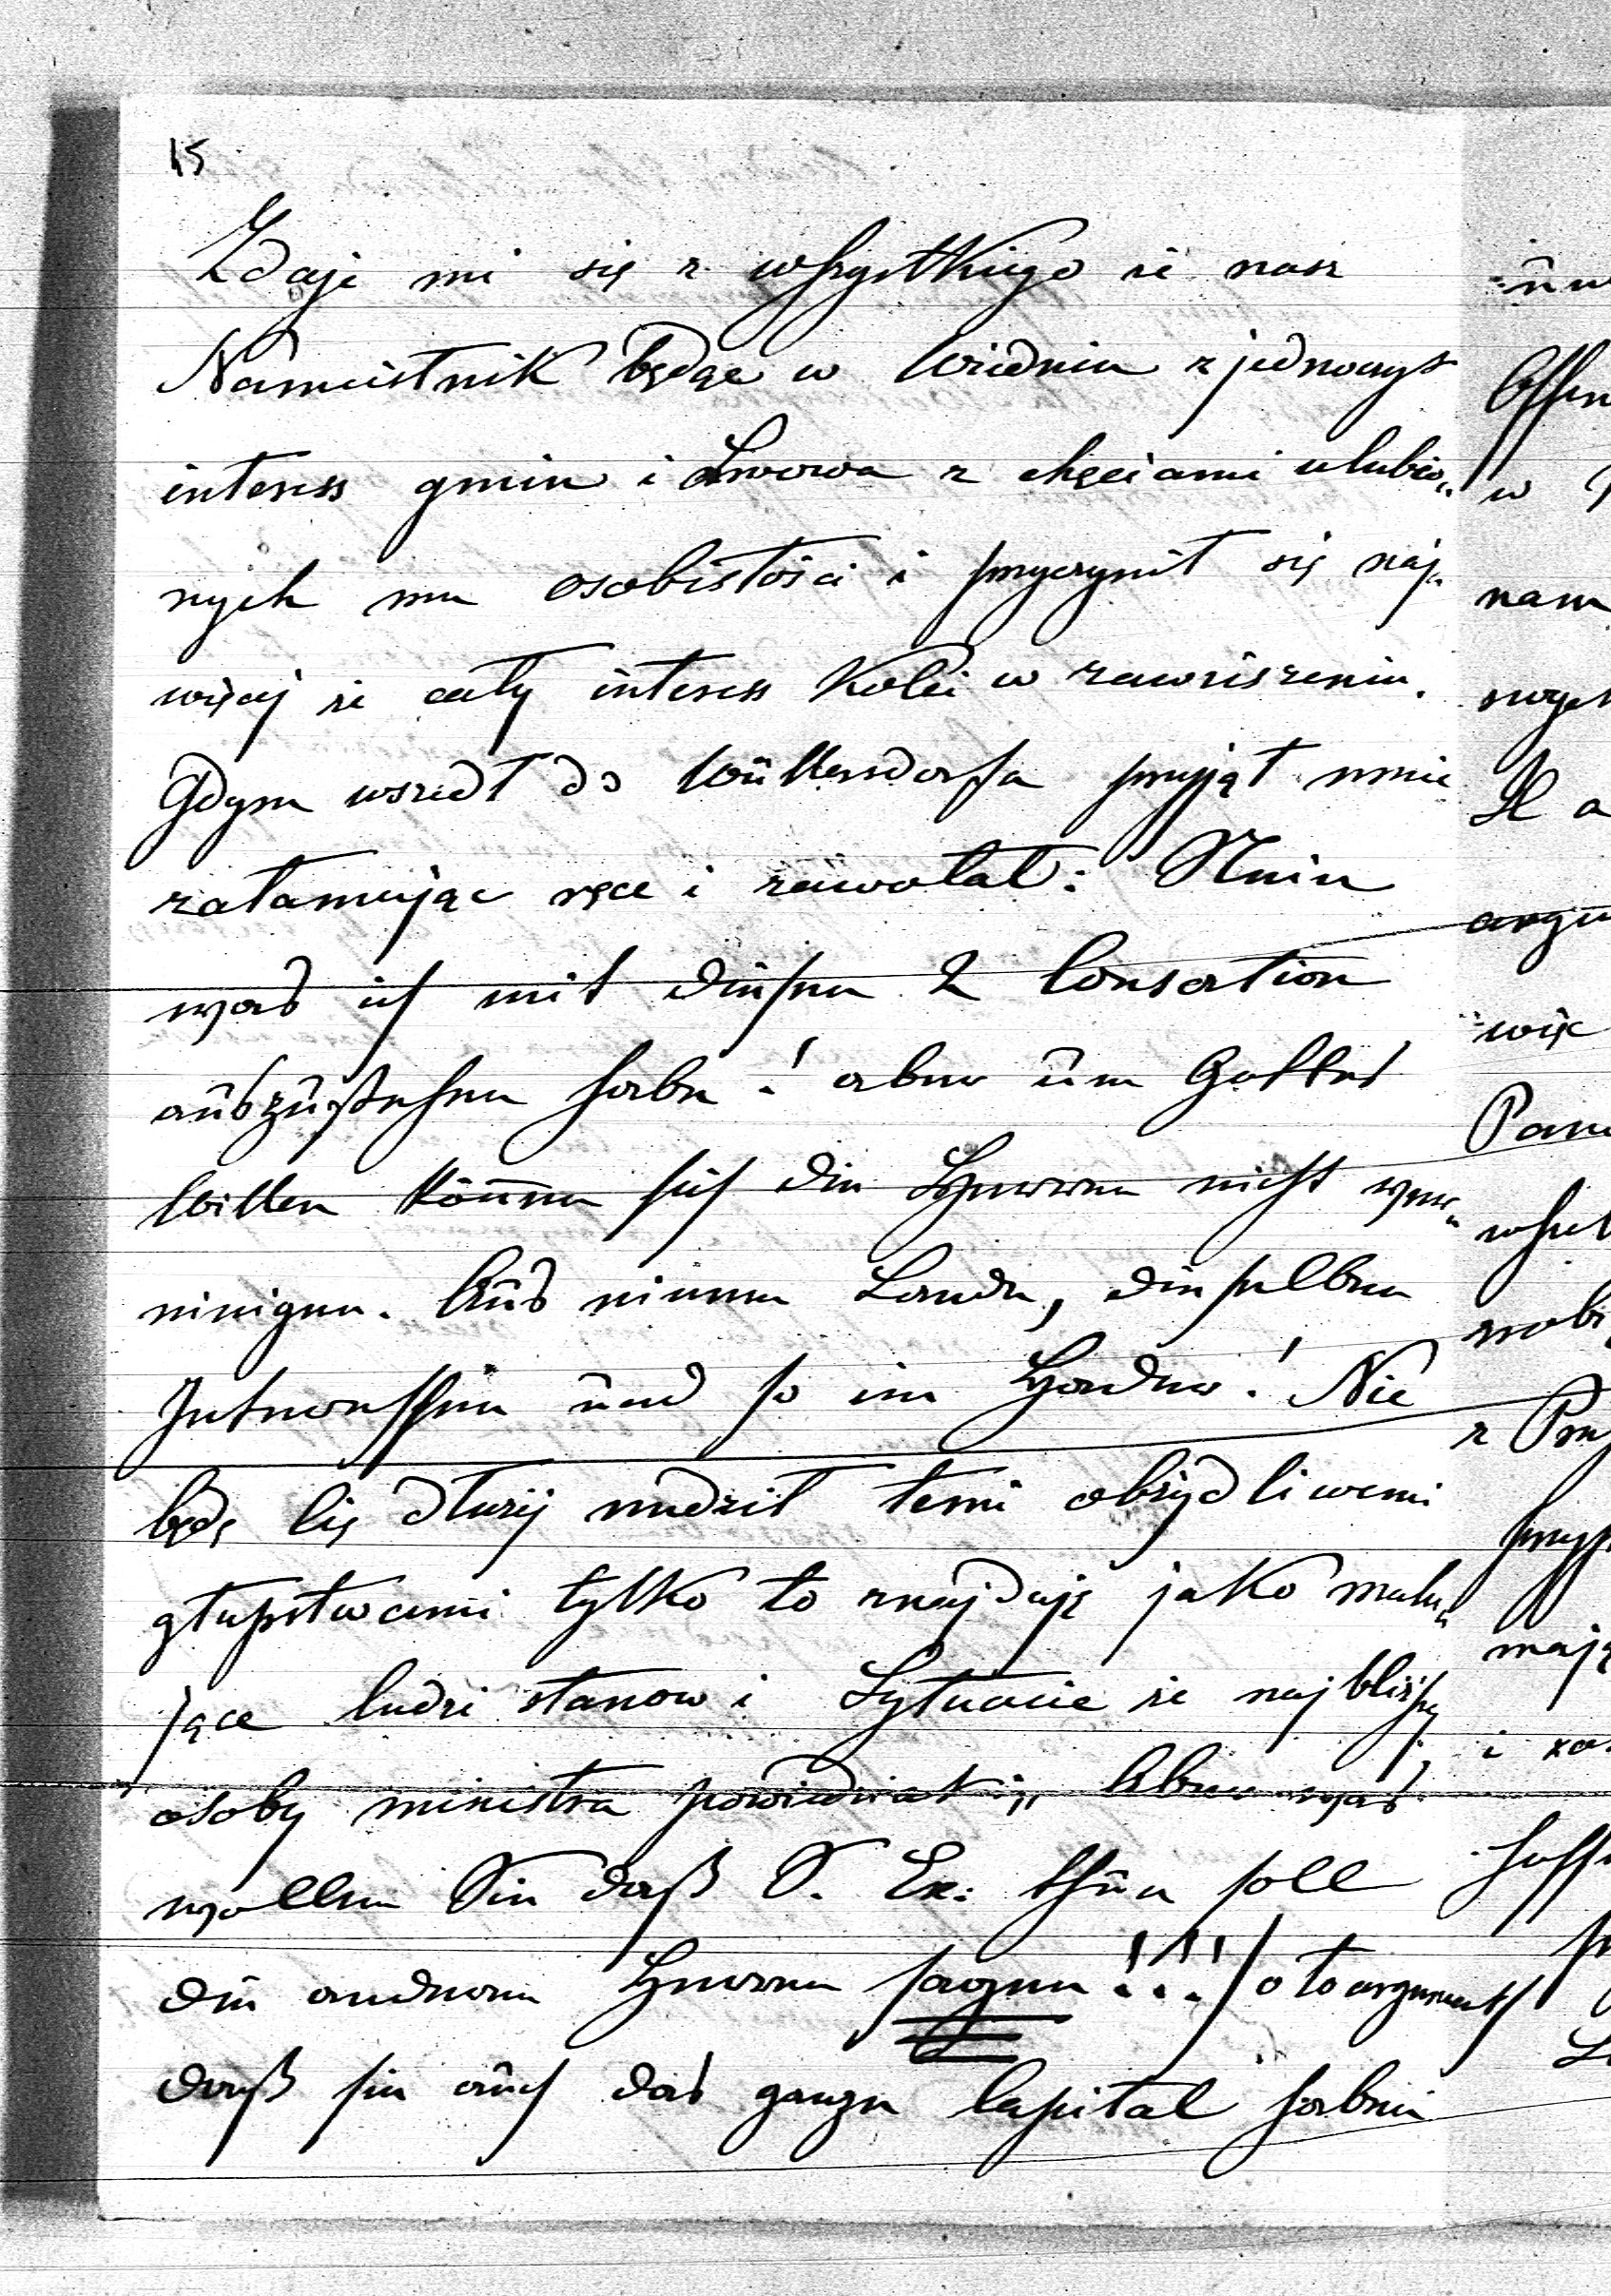 15
Zdaje mi się z wszystkiego że nasz
Namiestnik będąc w Wiedniu zjednoczył
interess gmin i Lwowa z chęciami ulubio„
nych mu osobistości i przyczynił się naj„
więcej że cały interess Kolei w zawieszeniu.
Gdym wszedł do Wüllersdorfa przyjął mnie
załamując ręce i zawołał: Nein
was ich mit diesen 2 Consortien
auszustehen habe! aber um Gottes
Willen können sich die Herrren nicht ver„
einigen. Aus einem Lande, dieselben
Interessen und so im Hader! Nie
będę Cię dłużej nudził temi obrzydliwemi
głupstwami tylko to znajduję jako malu„
jące ludzi stanow i Sytuacie że najbliższy
osoby ministra powiedział: „Aber was
wollen Sie daß S. Ex: thun soll
die anderen Herren sagen!!! / o to argument /
daß sie auch das ganze Capital haben